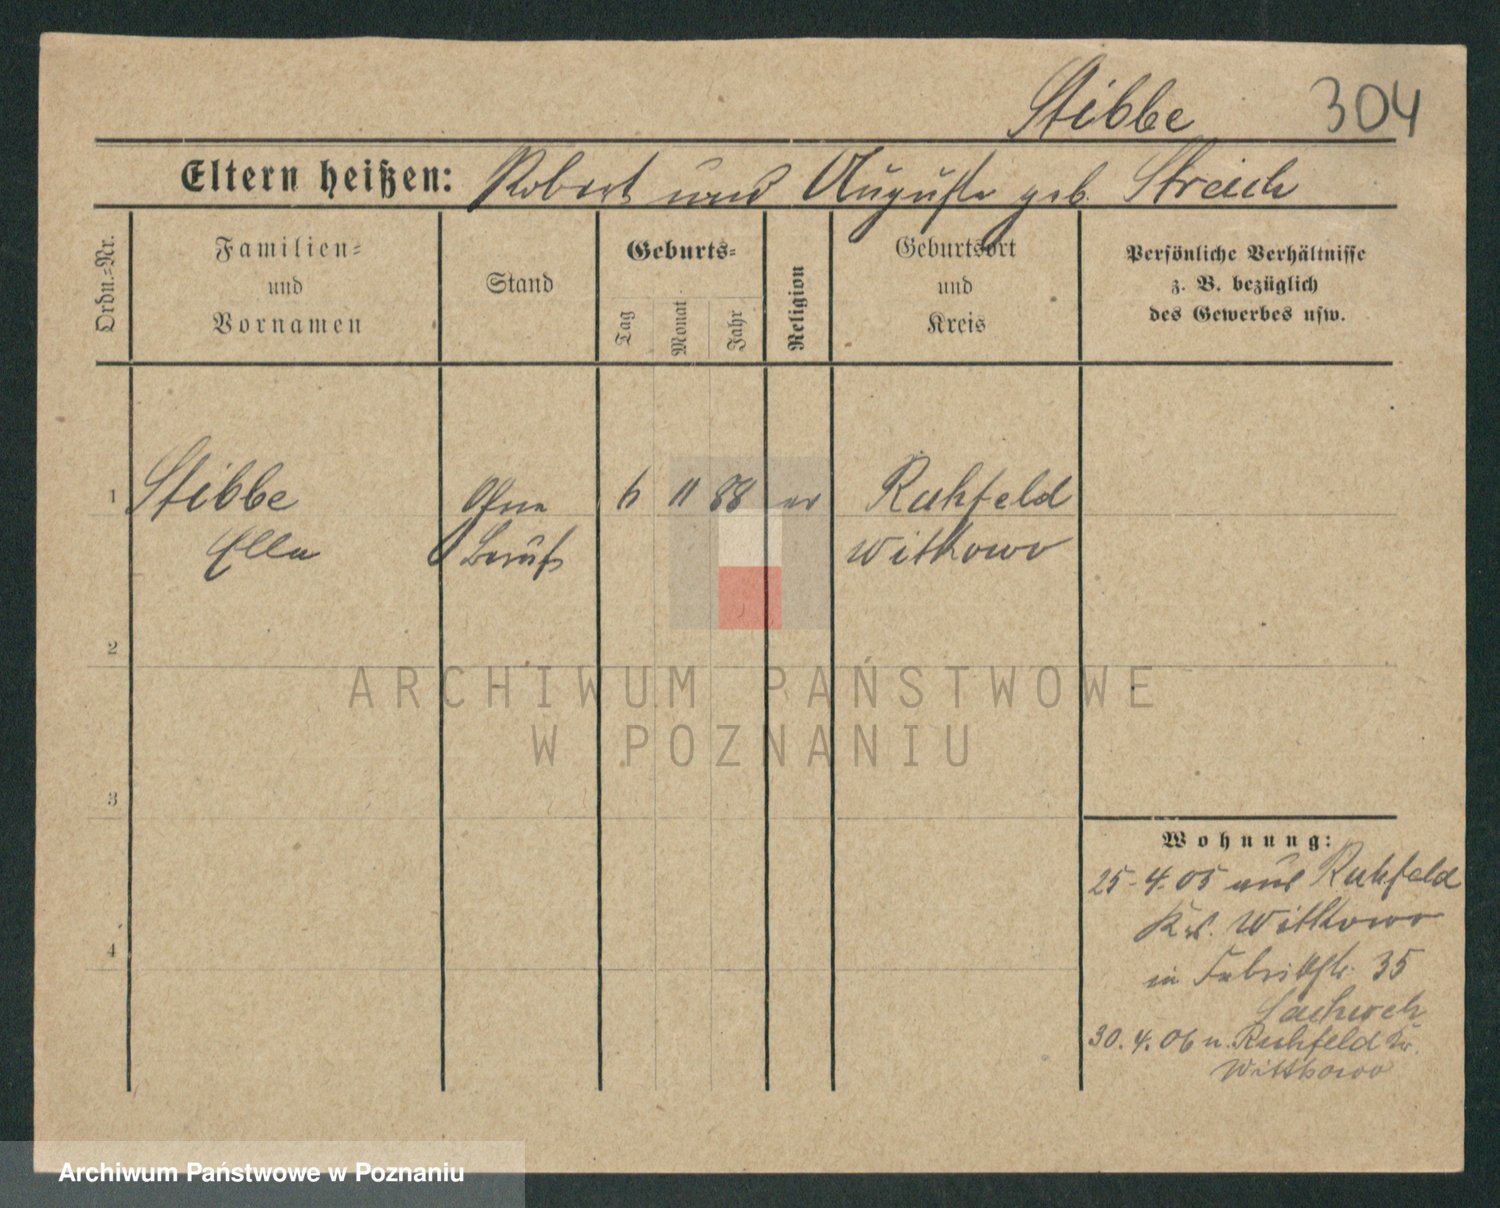 Stibbe 304
Eltern heißen: Robert und Auguste geb. Streich
Ordn.=Nr.
Familien=
und
Vornamen
Stand
Geburts=
Tag
Monat
Jahr
Religion
Geburtsort
und
Kreis
Persönliche Verhältnisse
z. B. bezüglich
des Gewerbes usw.
1 Stibbe Ohne 6 11 88 ev Ruhfeld
Ella Beruf Witkowo
2
ARCHIWUM PAŃSTWOWE
W POZNANIU
3
Wohnung:
25-4.05 aus Ruhfeld
Kr. Witkowo
4
in Fabrikstr. 35
30.4.06 n. Ruhfeld Kr.
Wittkowo
Archiwum Państwowe w Poznaniu